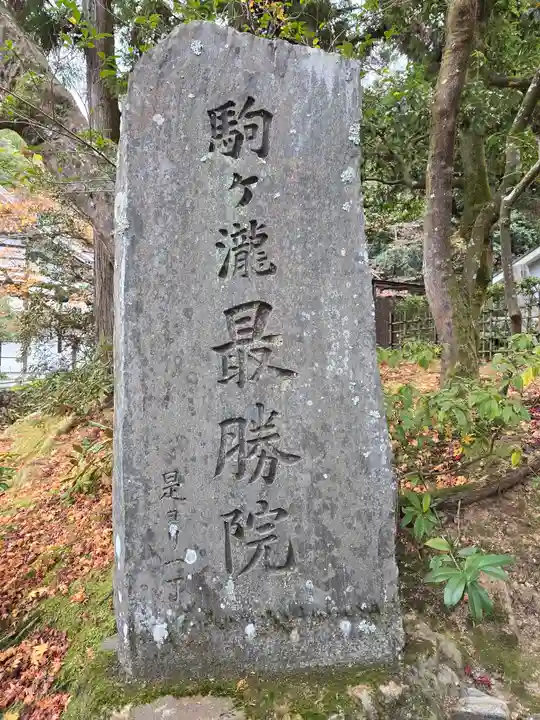 駒ヶ瀧最勝院
是ヨリ一丁